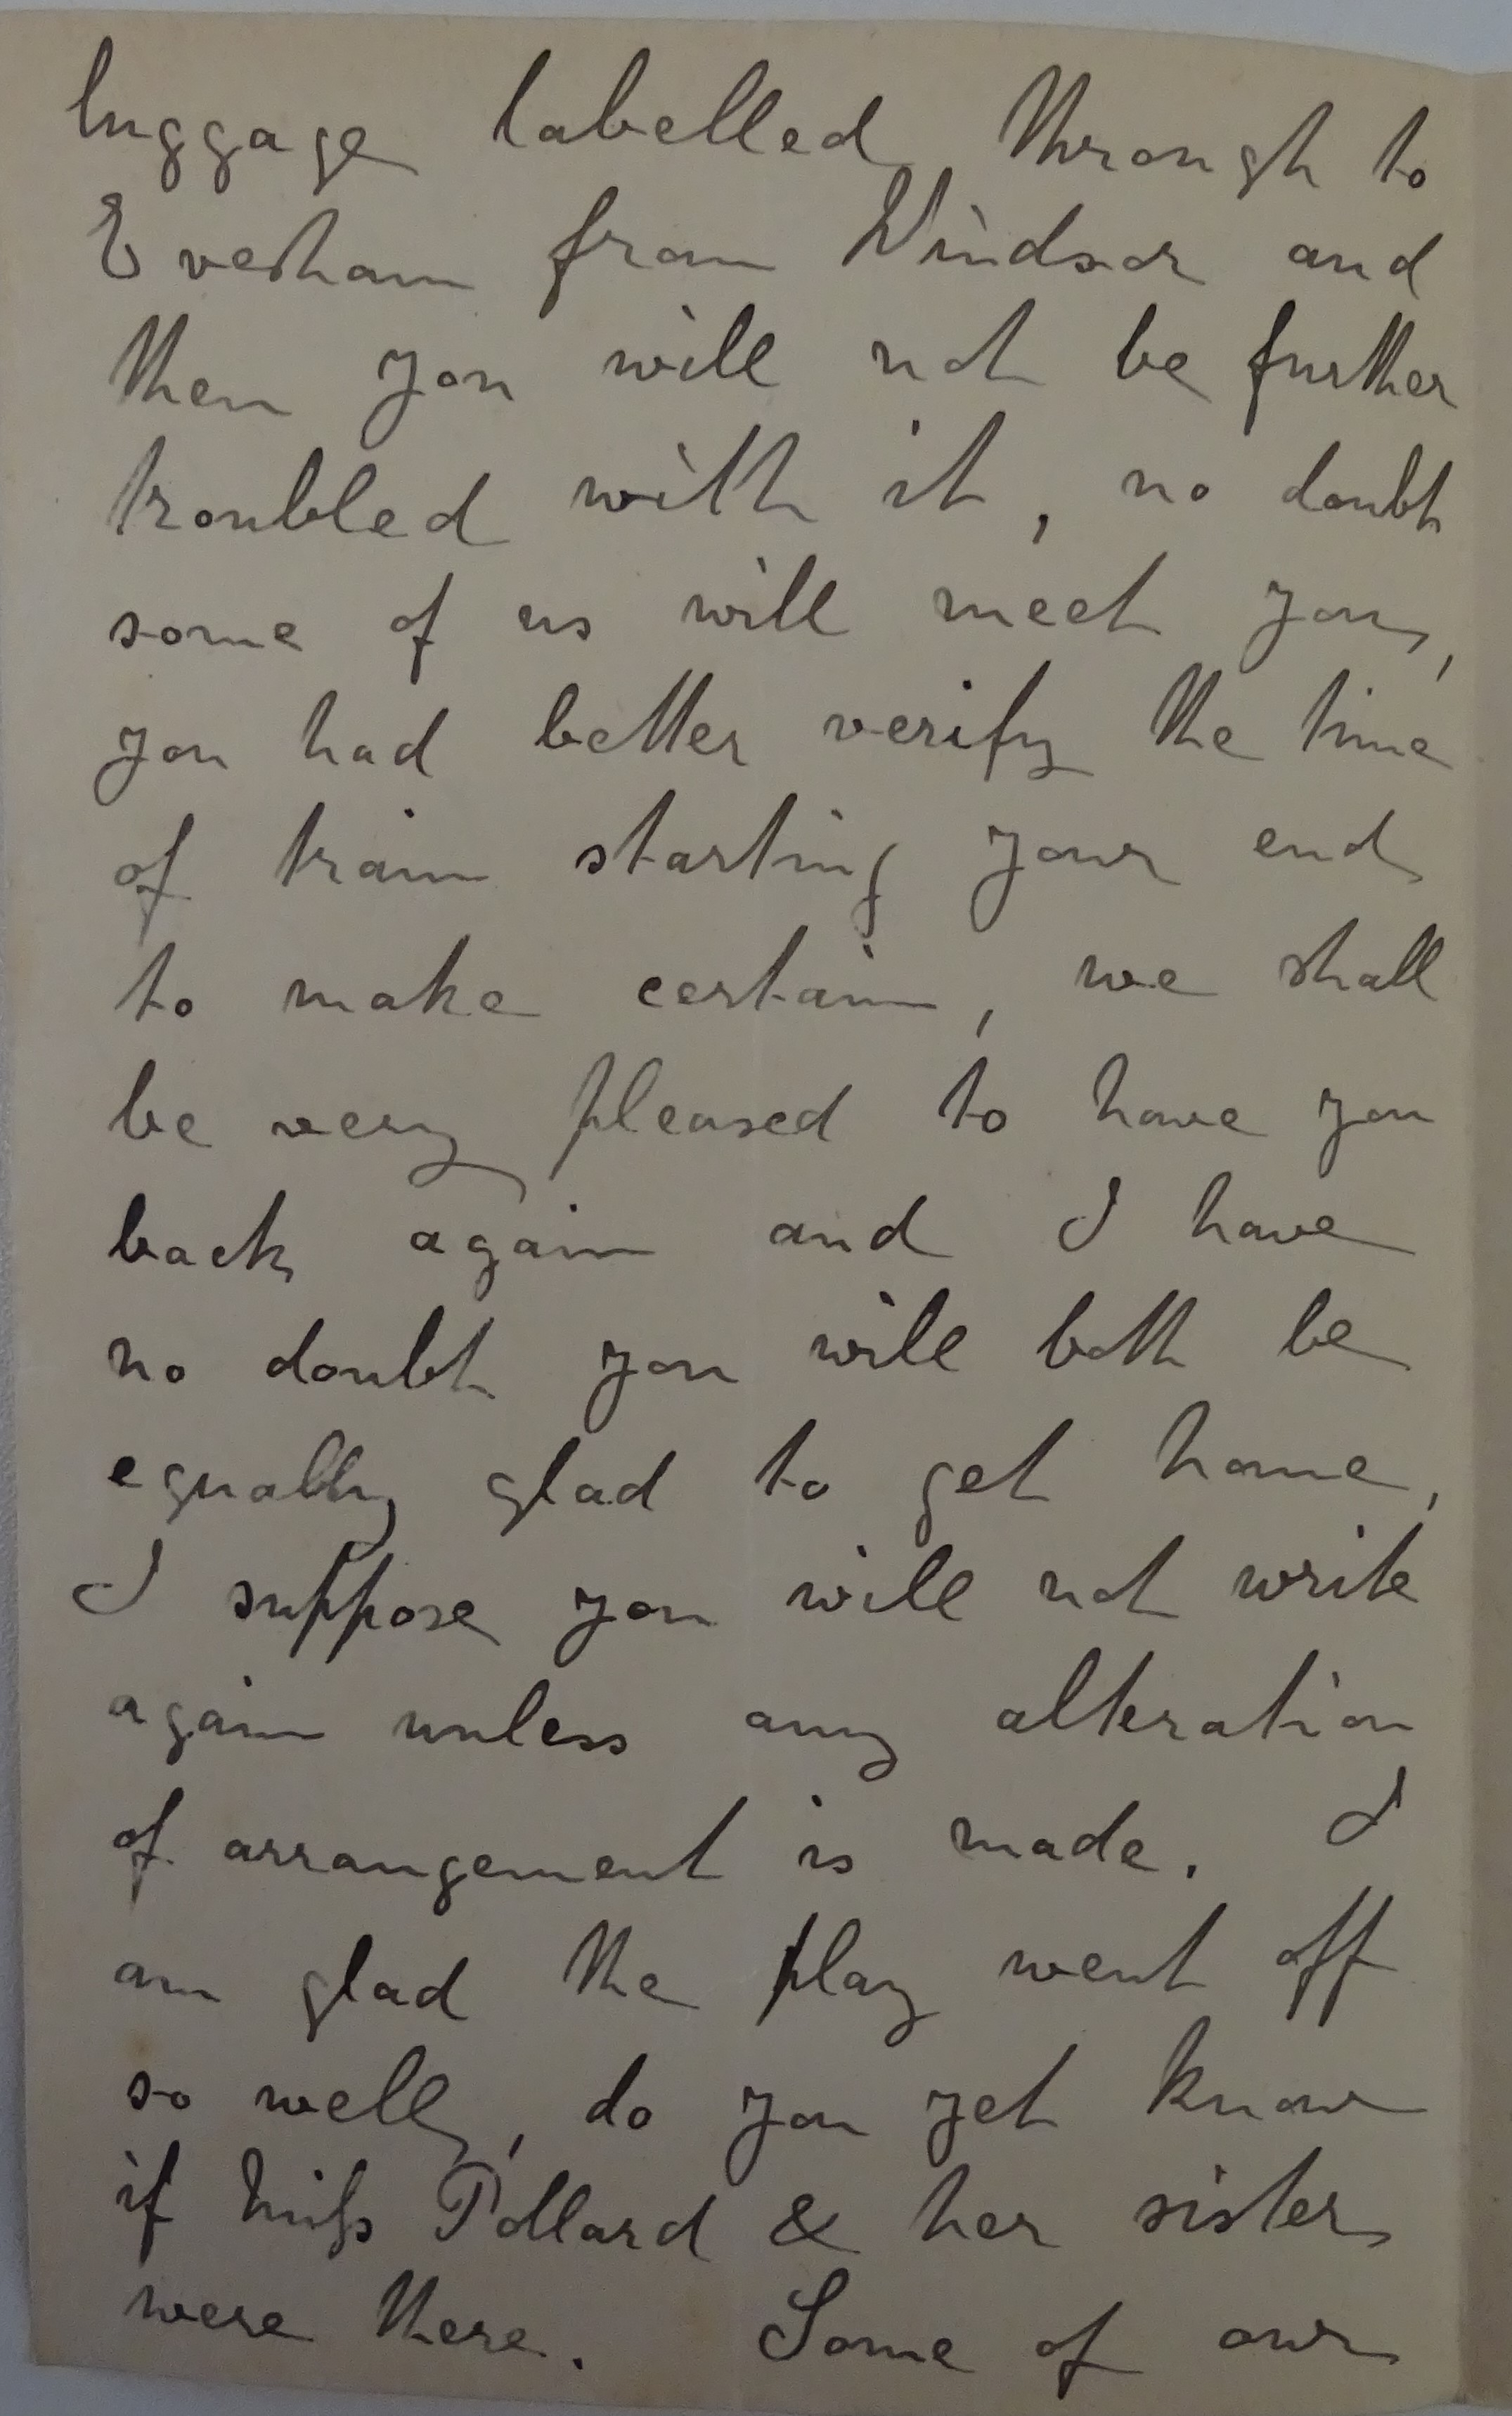 luggage labelled through to
Evesham from Windsor and
then you will not be further
troubled with it, no doubt
some of us will meet you,
you had better verify the time
of train starting your end
to make certain, we shall
be very pleased to have you
back again and I have
no doubt you will both be
equally glad to get home,
I suppose you will not write
again unless any alteration
of arrangement is made. I
am glad the play went off
so well, do you yet know
if Miſs Pollard & her sister
were there. Some of our